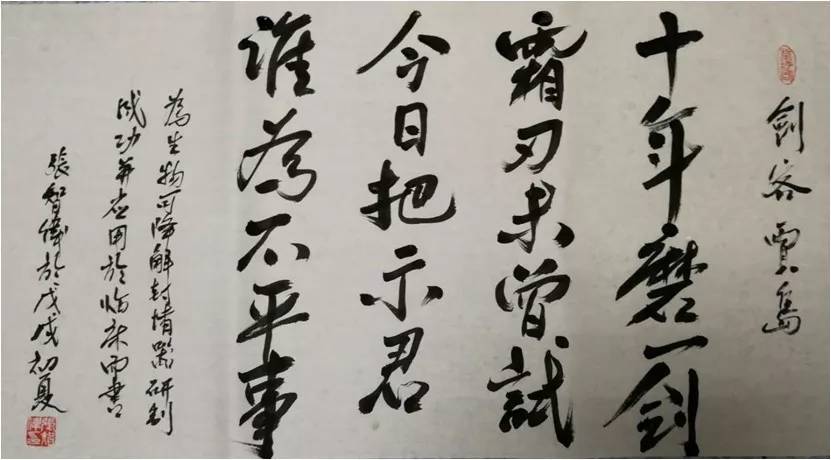 劍客 賈島
十年磨一劍
霜刃未曾試
今日把示君
誰為不平事
為生物可降解封堵器研創
成功並應用於臨床而書
張智偉於戊戌初夏